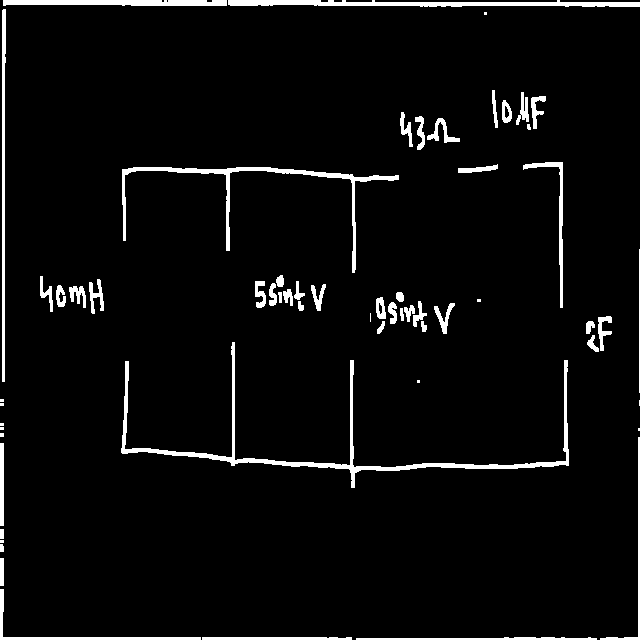 43Ω
10µF
40mH
5sint V
9sint V
2F